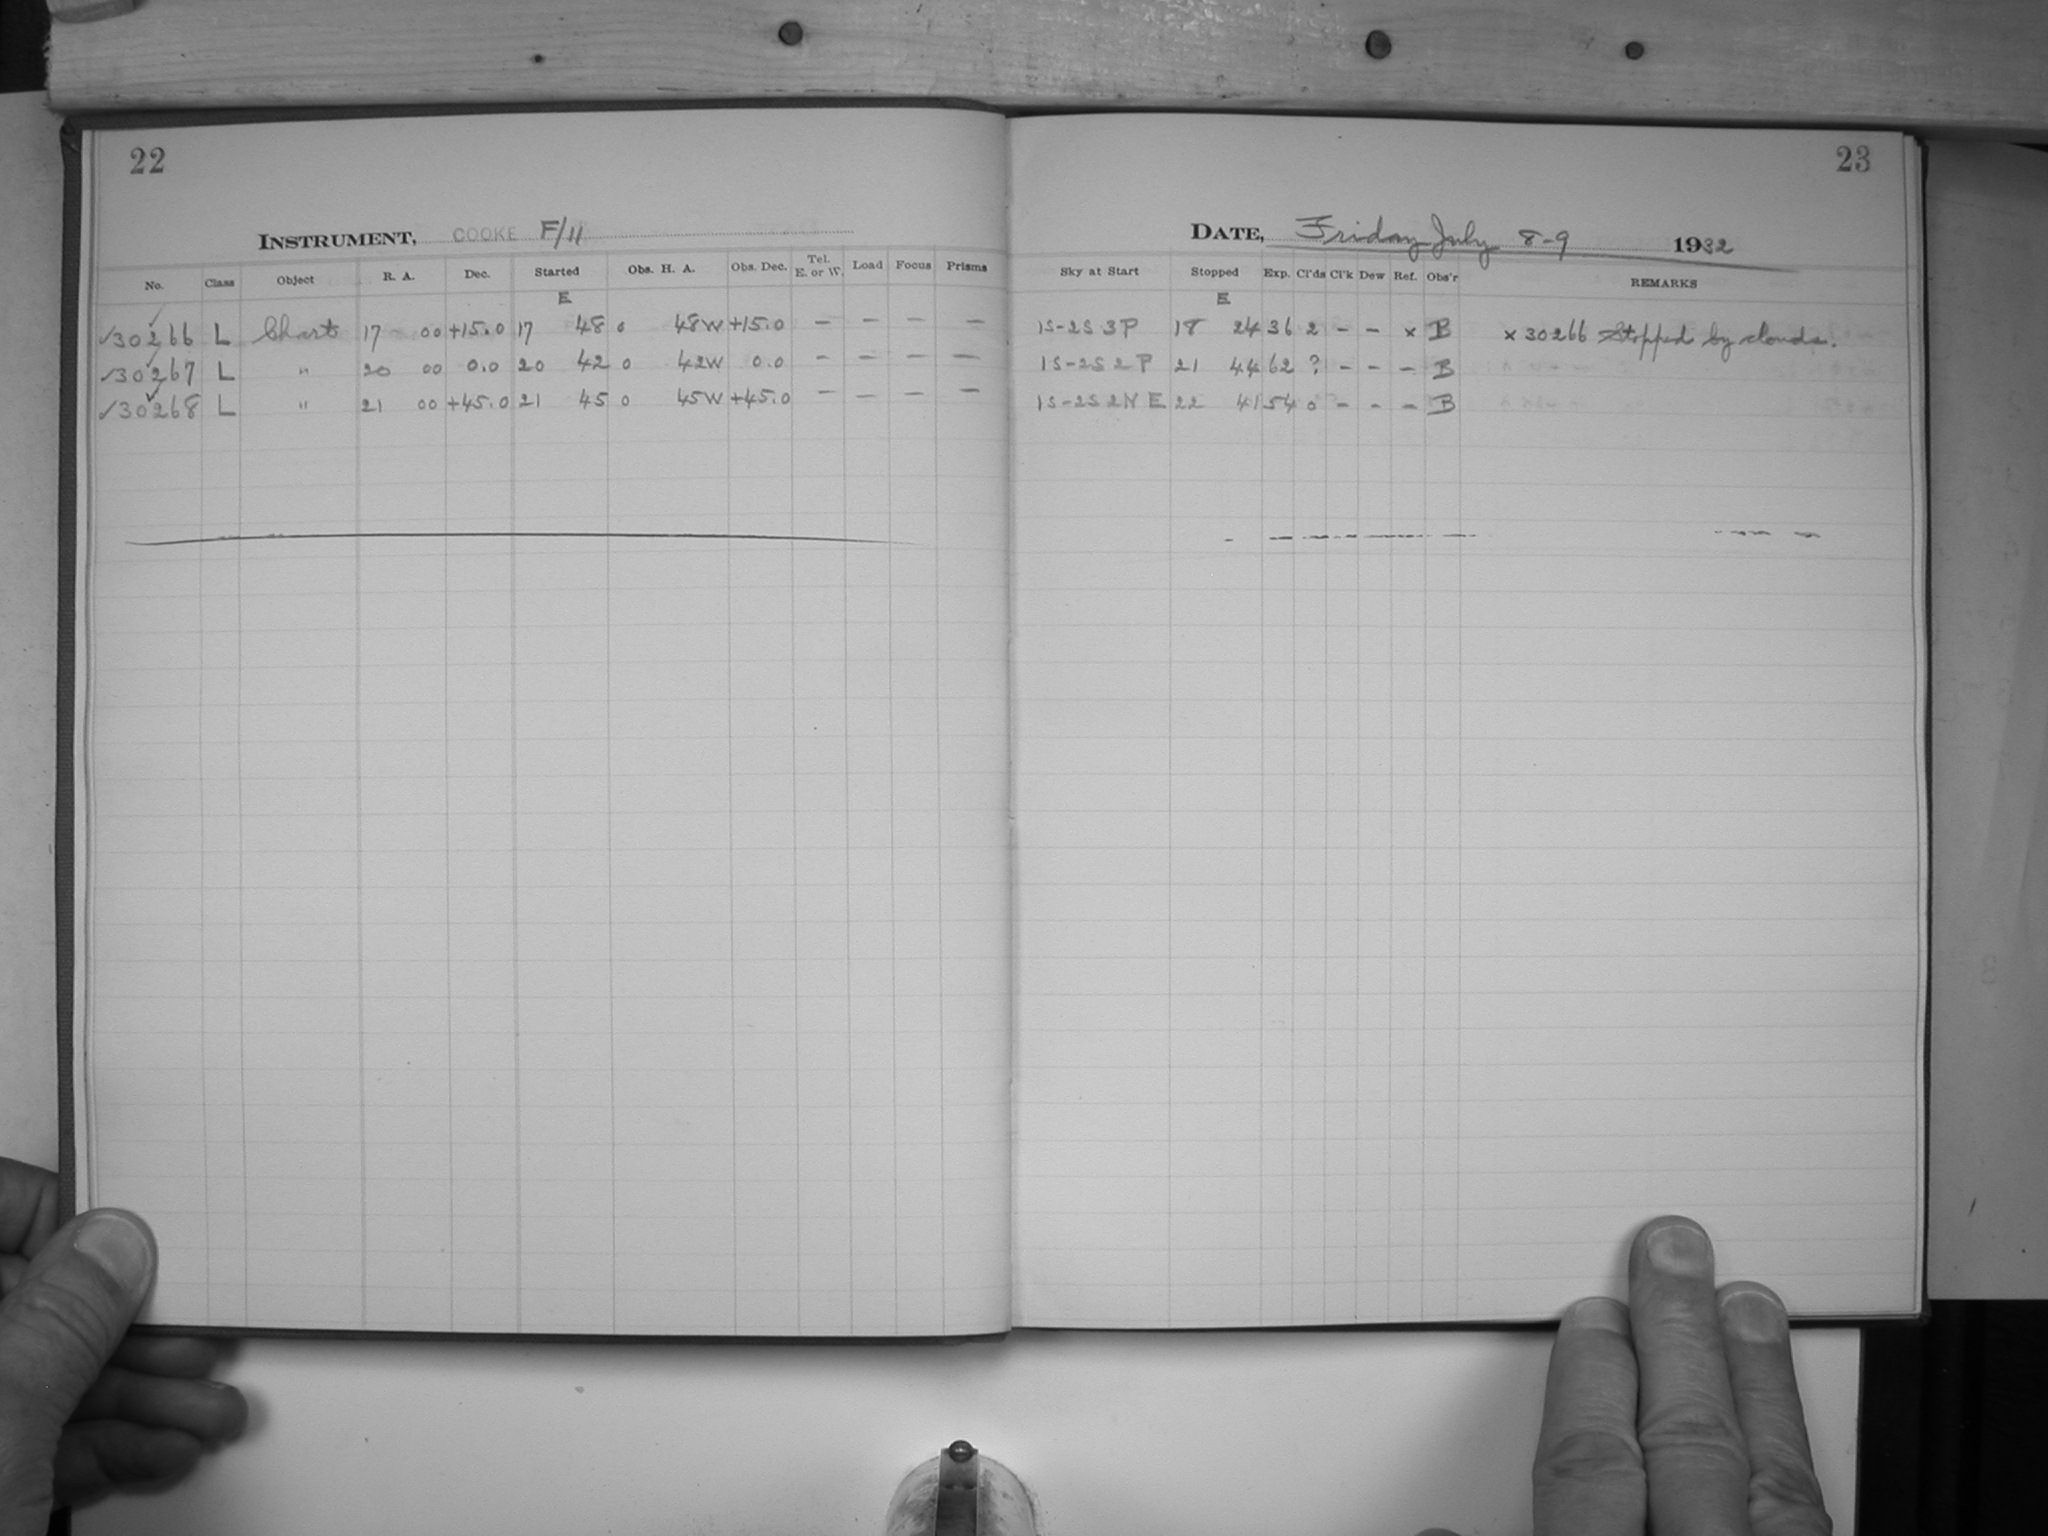 22
INSTRUMENT, COOKE F/11
No. Class Object R. A. Dec. Started Obs. H. A. Obs. Dec. Tel. E. or W. Load Focus Prisms
E
✓30266 L Chart 17 00 +15.0 17 48 0 48W +15.0 – – – –
✓30267 L " 20 00 0.0 20 42 0 42W 0.0 – – – –
✓30268 L " 21 00 +45.0 21 45 0 45W +45.0 – – – –
23
DATE, Friday July 8-9 1932
Sky at Start Stopped Exp. Cl'ds Cl'k Dew Ref. Obs'r REMARKS
E
1S-2S 3P 18 24 36 2 – – × B × 30266 Stopped by clouds.
1S-2S 2P 21 44 62 ? – – – B
1S-2S 2N E 22 41 54 0 – – – B